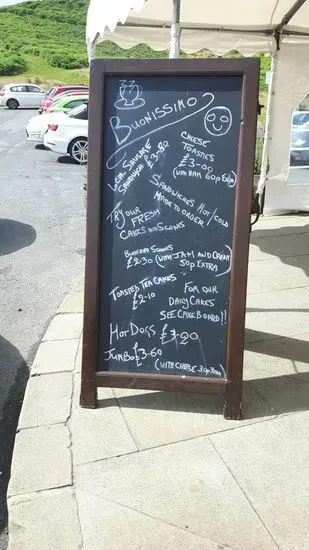 BUONISSIMO
LOCAL SAUSAGE
SANDWICH £3.50
CHEESE
TOASTIES
£3-00
(WITH HAM 60p Extra)
SANDWICHES HOT/COLD
MADE TO ORDER
TRY OUR FRESH
CAKES AND SCONES
SCONES
£2-30 (WITH JAM AND CREAM
50p EXTRA)
TOASTED TEA CAKES
£2-10
FOR OUR
DAILY CAKES
SEE CAKE BOARD!!
HOT DOGS £3-20
JUMBO £3-60
(WITH CHEESE 30p Extra)